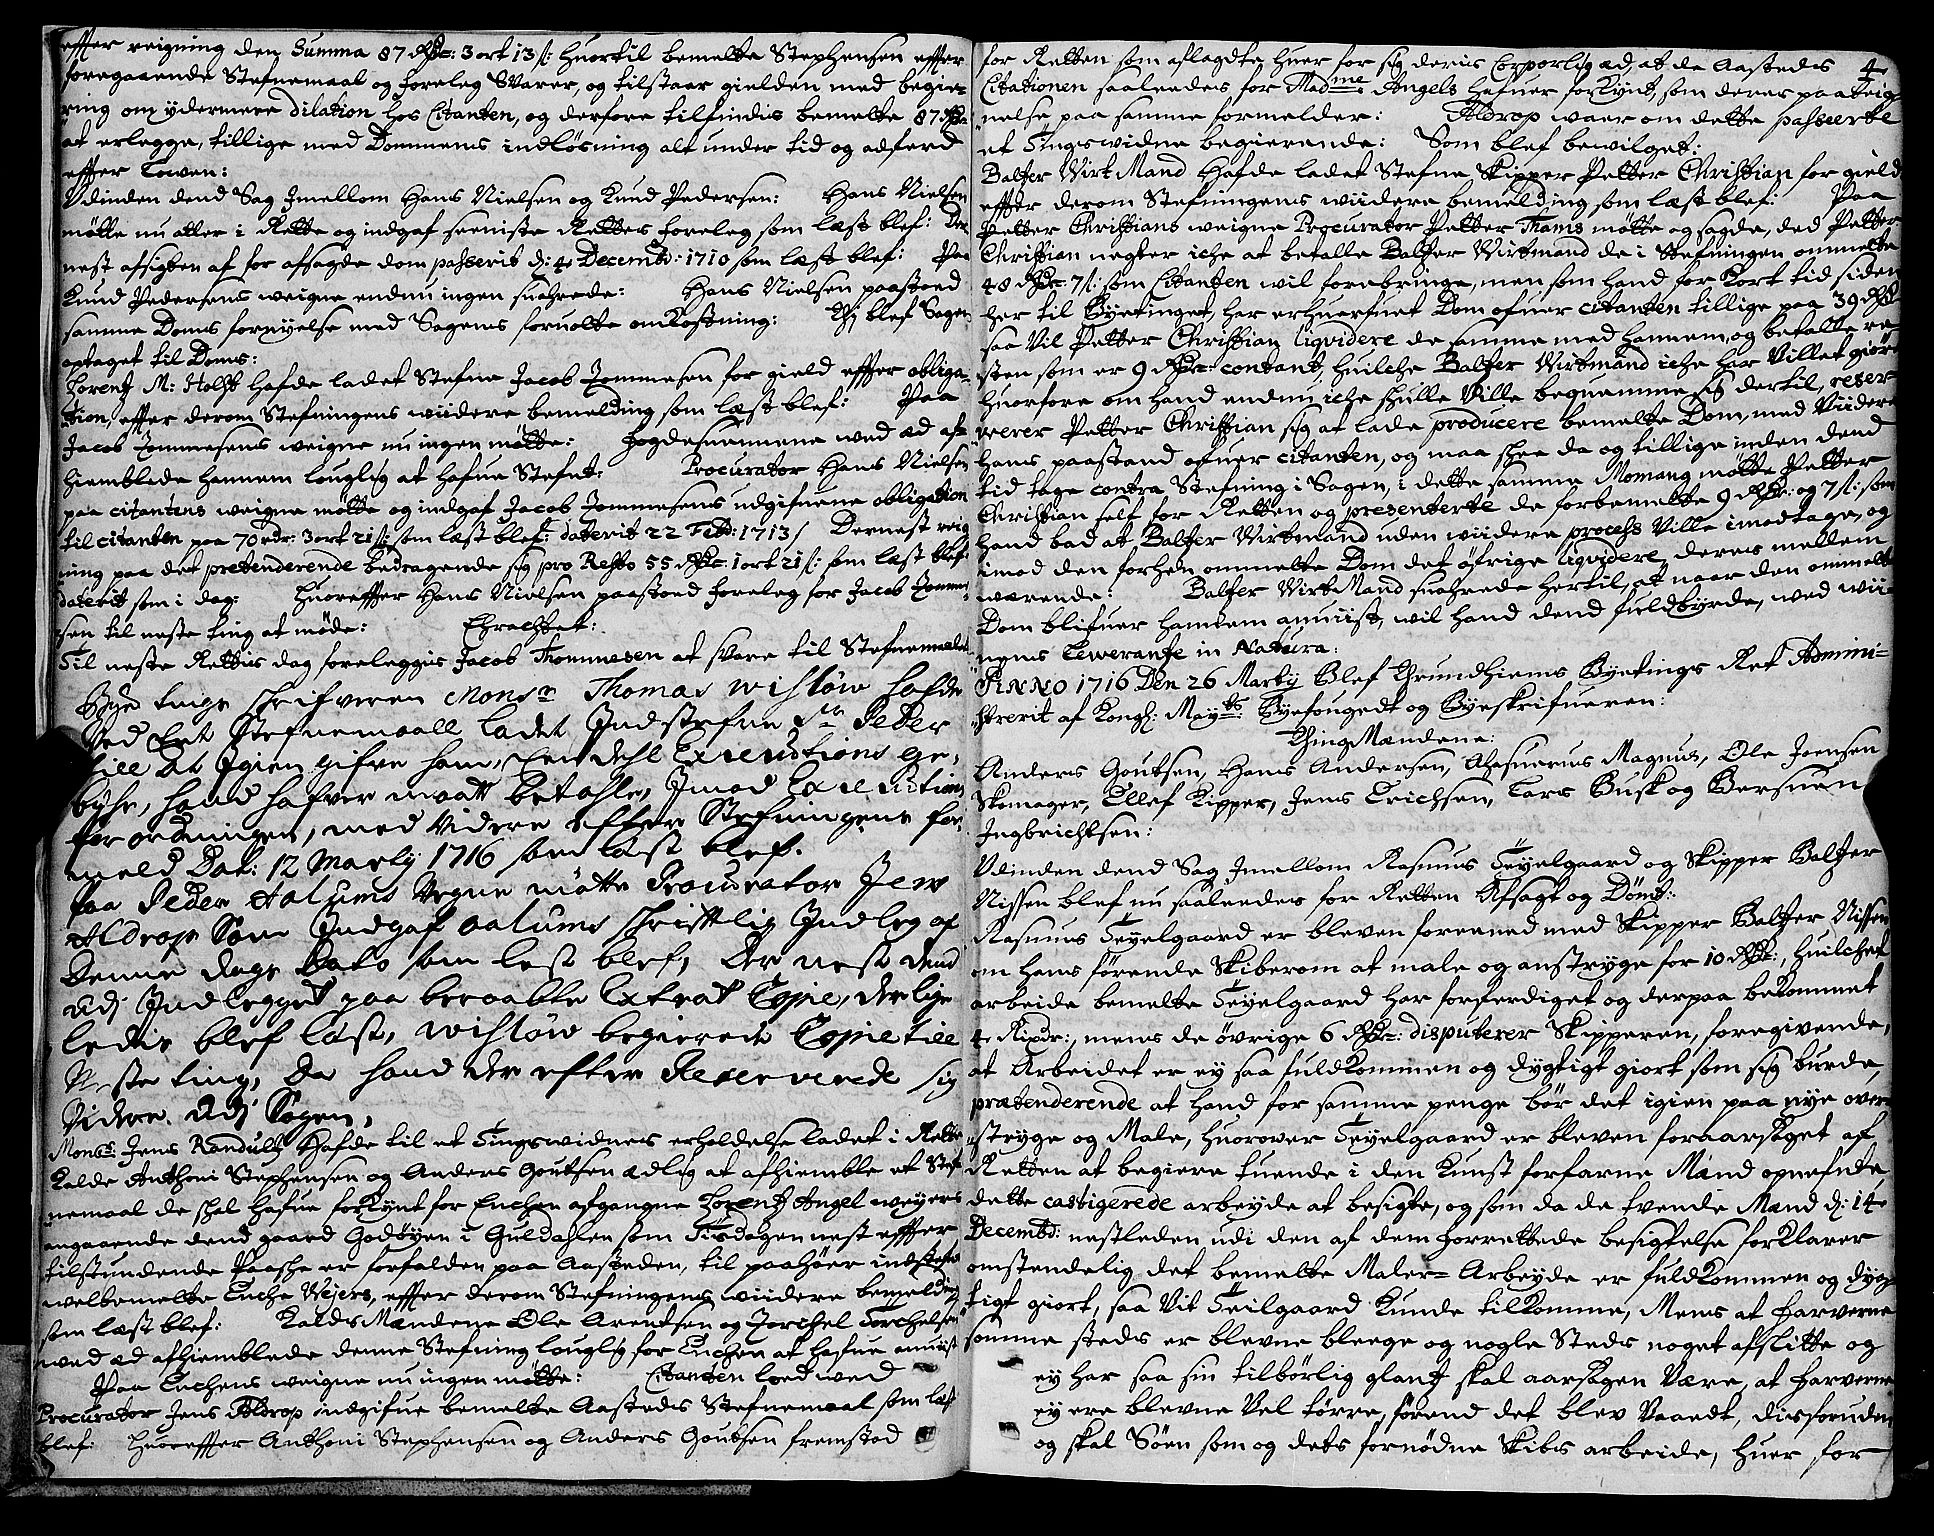 effter reigning den Summa 87 Rdr: 3 ort 13 s: huortil bemelte Stephensen effter
foregaaende Stefnemaal og foreleg Svarer, og tilstaar gielden med begie-
ring om ydermere dilation hos Citanten, og derfore tilfindis bemelte 87 Rdr
at erlegge, tillige med Dommens indløsning alt under tid og adferd
effter Lowen:
Udinden dend Sag Jmellom Hans Nielsen og Knud Pedersen: Hans Nielsen
møtte nu atter i Rette og indgaf seeniste Rettes foreleg som læst blef: Der
nest afsigten af for afsagde dom passerit d: 4 Decembr: 1710 som læst blef: Paa
Knud Pedersens weigne endnu ingen suarede: Hans Nielsen paastoed
samme Doms fornyelse med Sagens foruolte omkostning: Thj blef Sagen
optaget til Doms:
Lorentz M: Holst hafde ladet Stefne Jacob Tommesen for gield effter obliga-
tion, effter derom Stefningens wiidere bemelding som læst blef: Paa
Jacob Tommesens weigne nu ingen møtte: Hogdesmennene wed æd af-
hiemblede hannem louglig at hafue Stefnt: Procurator Hans Nielsen
paa citantens weigne møtte og indgaf Jacob Tommesens udgifuene obligation
til citanten paa 70 rdr: 3 ort 21 s: som læst blef: daterit 22 Febr: 1713 / Dernest reig
ning paa det pretenderende bedragende sig pro Resto 55 Rdr: 1 ort 21 s: som læst blef
daterit som i dag: Huoreffter Hans Nielsen paastoed foreleg for Jacob Tomme-
sen til neste ting at møde: Ehrachtet:
Til neste Rettis dag foreleggis Jacob Thommesen at svare til Stefnemaalet
Bye tings schrifveren Monsr Thomas Wisløw hafde
Ved Eet Stefnemaall ladet Jndstefne Sr Peder
till at Jgien gifve ham, Een dehl Executions ge-
byhr, hand hafver maatt betahle, Jmod Executions
forordningen, med Videre effter Stefningens for-
meld Dat: 12 Marty 1716 som læst blef.
Paa Peder Aalums Vegne møtte Procurator Jens
Aldrop Som Jndgaf Aalums schrifftlig Jndleg af
Denne dags Dato som lest blef, Der nest dend
udj Jndlegget paa beraabte Extrat Copie, der lige
ledis blef læst, Wisløw begierede Copie till
Neste ting, da hand der efter Reserverede sig
Videre udj Sagen,
Monsr: Jens Randulf hafde til et Tingswidnes erholdelse ladet i Rette
kalde Anthoni Stephensen og Anders Goutsen ædlig at afhiemble et Stef-
nemaal de skal hafue forkynt for Enchen afgangne Lorentz Angel weyers
angaaende dend gaard Godøyen i Guldahlen som Tirsdagen nest effter
tilstundende Paasche er forfalden paa Aasteden, til paahøer indstefnt
welbemelte Enche Weiers, effter derom Stefningens wiidere bemelding
som læst blef: KaldsMændene Ole Arentsen og Torchel Torchelsen
wed æd afhiemblede denne Stefning louglig for Enchen at hafue anuiist
Paa Enchens weigne nu ingen møtte: Citanten loed wed
Procurator Jens Aldrop indgifue bemelte Aasteds Stefnemaal som læst
blef: Huoreffter Anthoni Stephensen og Anders Goutsen fremstod
4
for Retten som aflagde huer for sig deris Corporlig æd, at de Aastedis
Citationen saaledes for Madme Angels hafuer forkynt, som deres paateig-
nelse paa samme formelder: Aldrop waer om dette passerte
et Tingswidne begierende: Som blef bewilget:
Baltzer Wirtmand hafde ladet Stefne Skipper Petter Christian for gield
effter derom Stefningens wiidere bemelding som læst blef: Paa
Petter Christians weigne Procurator Petter Thams møtte og sagde, ded Petter
Christian negter iche at betalle Baltzer Wirtmand de i Stefningen ommelte
48 Rdr: 7 s: som Citanten wil forebringe, men som hand for kort tid siden
her til Byetinget, har erhuerfuet Dom ofuer citanten tillige paa 39 Rdr
saa Vil Petter Christian liqvidere de samme med hannem, og betalle re-
sten som er 9 Rdr: contant, huilche Baltzer Wirtmand iche har Villet giøre
huorfore om hand endnu iche skulle Ville beqvemme sig dertil, reser-
verer Petter Christian sig at lade producere bemelte Dom, med Viidere
hans paastand ofuer citanten, og maa skee da og tillige inden dend
tid tage contra Stefning i Sagen, i dette samme Momang møtte Petter
Christian self for Retten og presenterte de forbemelte 9 Rdr: og 7 s: som
hand bad at Baltzer Wirtmand uden wiidere process Ville imodtage, og
imod den forhen ommelte Dom det øfrige liqvidere, deres mellem
wærende: Baltzer Wirtmand suarede hertil, at naar den ommelte
Dom blifuer hannem anuiist, wil hand dend fuldbyrde, wed wii-
nens Lewerantze in Natura:
ANNO 1716 Den 26 Marty Blef Thrundhiems Byetings Ret Admini-
strerit af Kongl: Mayts: Byefouged og Byeskrifueren:
ThingMændene:
Anders Goutsen, Hans Andersen, Ahasuerus Magnus, Ole Joensen
Skomager, Ellef Kipper, Jens Erichsen, Lars Busk og Bersuen
Jngbrichtsen:
Udinden dend Sag Jmellom Rasmus Teyelgaard og Skipper Baltzer
Nissen blef nu saaledes for Retten Afsagt og Dømt:
Rasmus Teyelgaard er bleven foreened med Skipper Baltzer Nissen
om hans førende Skiberom at male og anstryge for 10 Rdr:, huilchet
arbeide bemelte Teyelgaard har forferdiget og derpaa bekommet
4 Rixdr:, mens de øvrige 6 Rdr: disputerer Skipperen, foregivende,
at Arbeidet er ej saa fuldkommen og dygtigt giort som sig burde,
prætenderende at hand for samme penge bør det igien paa nye over-
stryge og Male, Huorover Teyelgaard er bleven foraarsaget af
Retten at begiere tuende i den kunst forfarne Mænd opnefnte
dette castigerede arbeyde at besigte, og som da de tvende Mænd d: 14
Decembr: nestleden udi den af dem forrettede besigtelse forklarer
omstendelig det bemelte Maler-Arbeyde er fuldkommen og dyg-
tigt giort, saa Vit Teilgaard kunde tilkomme, Mens at farverne
somme steds er blevne bleege og nogle Steds noget afslitte og
ej har saa sin tilbørlig glantz skal aarsagen Være, at farverne
ej ere blevne Vel tørre, førend det blev Vaadt, disforuden
og skal Søen som og dets fornødne Skibs arbeide, huer for